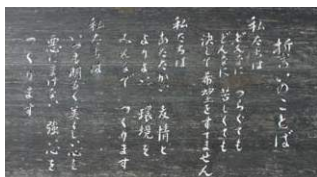 誓いのことば
私たちは
どんなに つらくても
どんなに 苦しくても
決して希望をすてません
私たちは
あたたかい 友情と
よりよい 環境を
みんなで つくります
私たちは
いつも明るく美しい心と
悪にまけない 強い心を
つくります